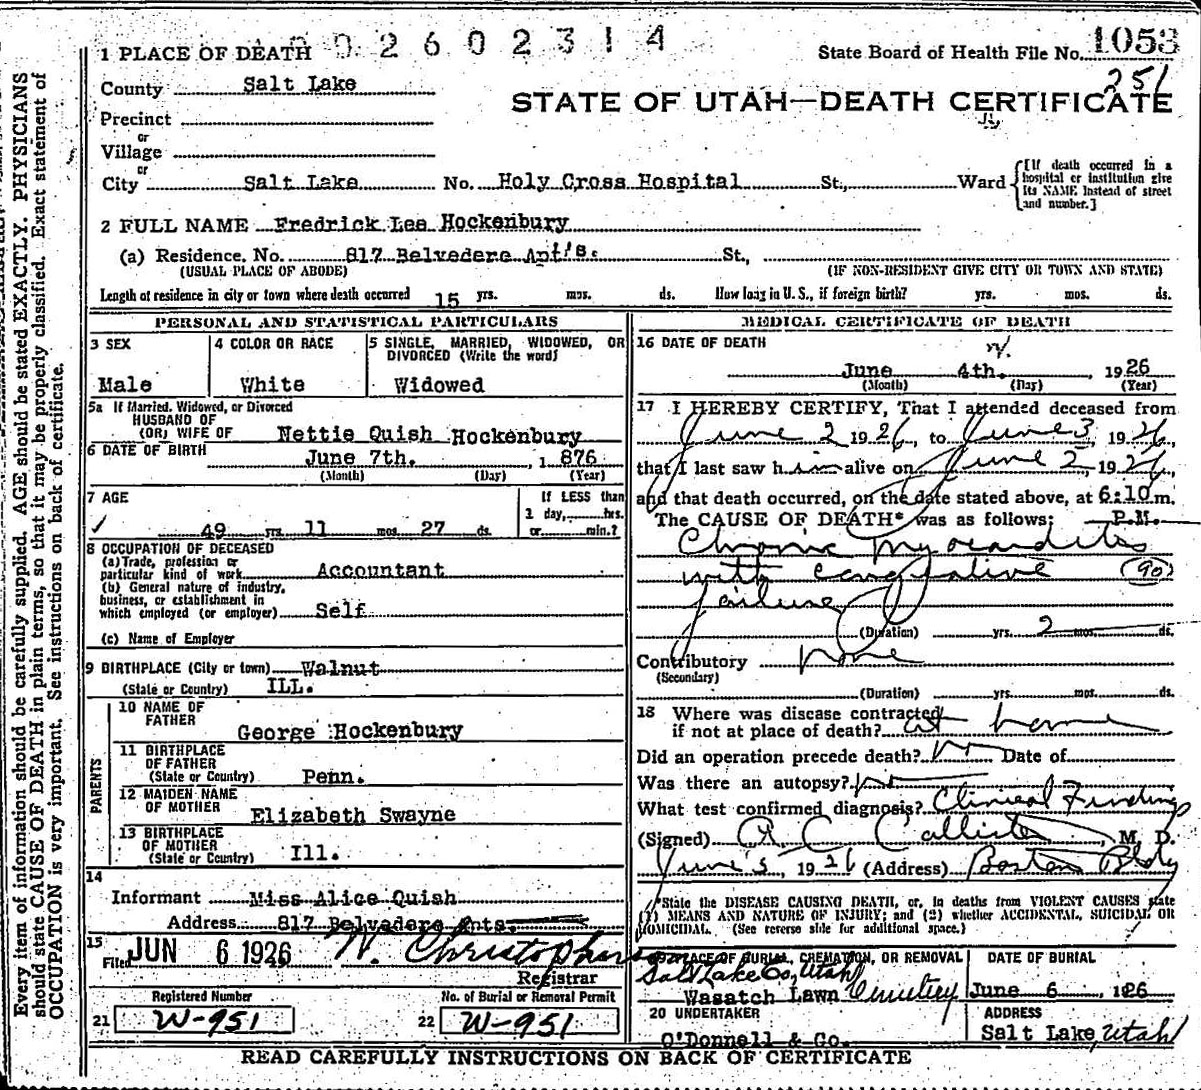 1 PLACE OF DEATH 002602314 State Board of Health File No. 1053
County Salt Lake 251
STATE OF UTAH—DEATH CERTIFICATE
Precinct
or
Village
or
City Salt Lake No. Holy Cross Hospital St., Ward {[If death occurred in a hospital or institution give its NAME instead of street and number.]
2 FULL NAME Fredrick Lee Hockenbury
(a) Residence. No. 817 Belvedere Apt's. St.,
(USUAL PLACE OF ABODE) (IF NON-RESIDENT GIVE CITY OR TOWN AND STATE)
Length of residence in city or town where death occurred 15 yrs. mos. ds. How long in U. S., if foreign birth? yrs. mos. ds.
PERSONAL AND STATISTICAL PARTICULARS
3 SEX
Male
4 COLOR OR RACE
White
5 SINGLE, MARRIED, WIDOWED, OR
DIVORCED (Write the word)
Widowed
5a If Married, Widowed, or Divorced
HUSBAND OF
(OR) WIFE OF Nettie Quish Hockenbury
6 DATE OF BIRTH June 7th. , 1876
(Month) (Day) (Year)
7 AGE
49 yrs. 11 mos. 27 ds.
If LESS than
1 day, hrs.
or min.?
8 OCCUPATION OF DECEASED
(a) Trade, profession or
particular kind of work Accountant
(b) General nature of industry,
business, or establishment in
which employed (or employer) Self
(c) Name of Employer
9 BIRTHPLACE (City or town) Walnut
(State or Country) ILL.
PARENTS
10 NAME OF
FATHER
George Hockenbury
11 BIRTHPLACE
OF FATHER
(State or Country) Penn.
12 MAIDEN NAME
OF MOTHER
Elizabeth Swayne
13 BIRTHPLACE
OF MOTHER
(State or Country) Ill.
14
Informant Miss Alice Quish
Address 817 Belvedere Apts.
15
Filed JUN 6 1926 N. Christopherson
Registrar
Registered Number
21 W-951
No. of Burial or Removal Permit
22 W-951
MEDICAL CERTIFICATE OF DEATH
16 DATE OF DEATH
June 4th. , 1926
(Month) (Day) (Year)
17 I HEREBY CERTIFY, That I attended deceased from
June 2 1926, to June 3, 1926,
that I last saw him alive on June 2 1926,
and that death occurred, on the date stated above, at 6:10 m.
The CAUSE OF DEATH* was as follows: P.M.
Chronic Myocarditis
with congestive (90)
failure
(Duration) yrs. 2 mos. ds.
Contributory none
(Secondary)
(Duration) yrs. mos. ds.
18 Where was disease contracted
if not at place of death? at home
Did an operation precede death? No Date of
Was there an autopsy? no
What test confirmed diagnosis? Clinical Findings
(Signed) A. C. Callister, M. D.
June 5, 1926 (Address) Boston Bldg
*State the DISEASE CAUSING DEATH, or, in deaths from VIOLENT CAUSES state
(1) MEANS AND NATURE OF INJURY; and (2) whether ACCIDENTAL, SUICIDAL OR
HOMICIDAL. (See reverse side for additional space.)
PLACE OF BURIAL, CREMATION, OR REMOVAL
Salt Lake Co, Utah
Wasatch Lawn Cemetery
DATE OF BURIAL
June 6 , 1926
20 UNDERTAKER
O'Donnell & Co.
ADDRESS
Salt Lake, Utah
READ CAREFULLY INSTRUCTIONS ON BACK OF CERTIFICATE
Every item of information should be carefully supplied. AGE should be stated EXACTLY. PHYSICIANS
should state CAUSE OF DEATH in plain terms, so that it may be properly classified. Exact statement of
OCCUPATION is very important. See instructions on back of certificate.